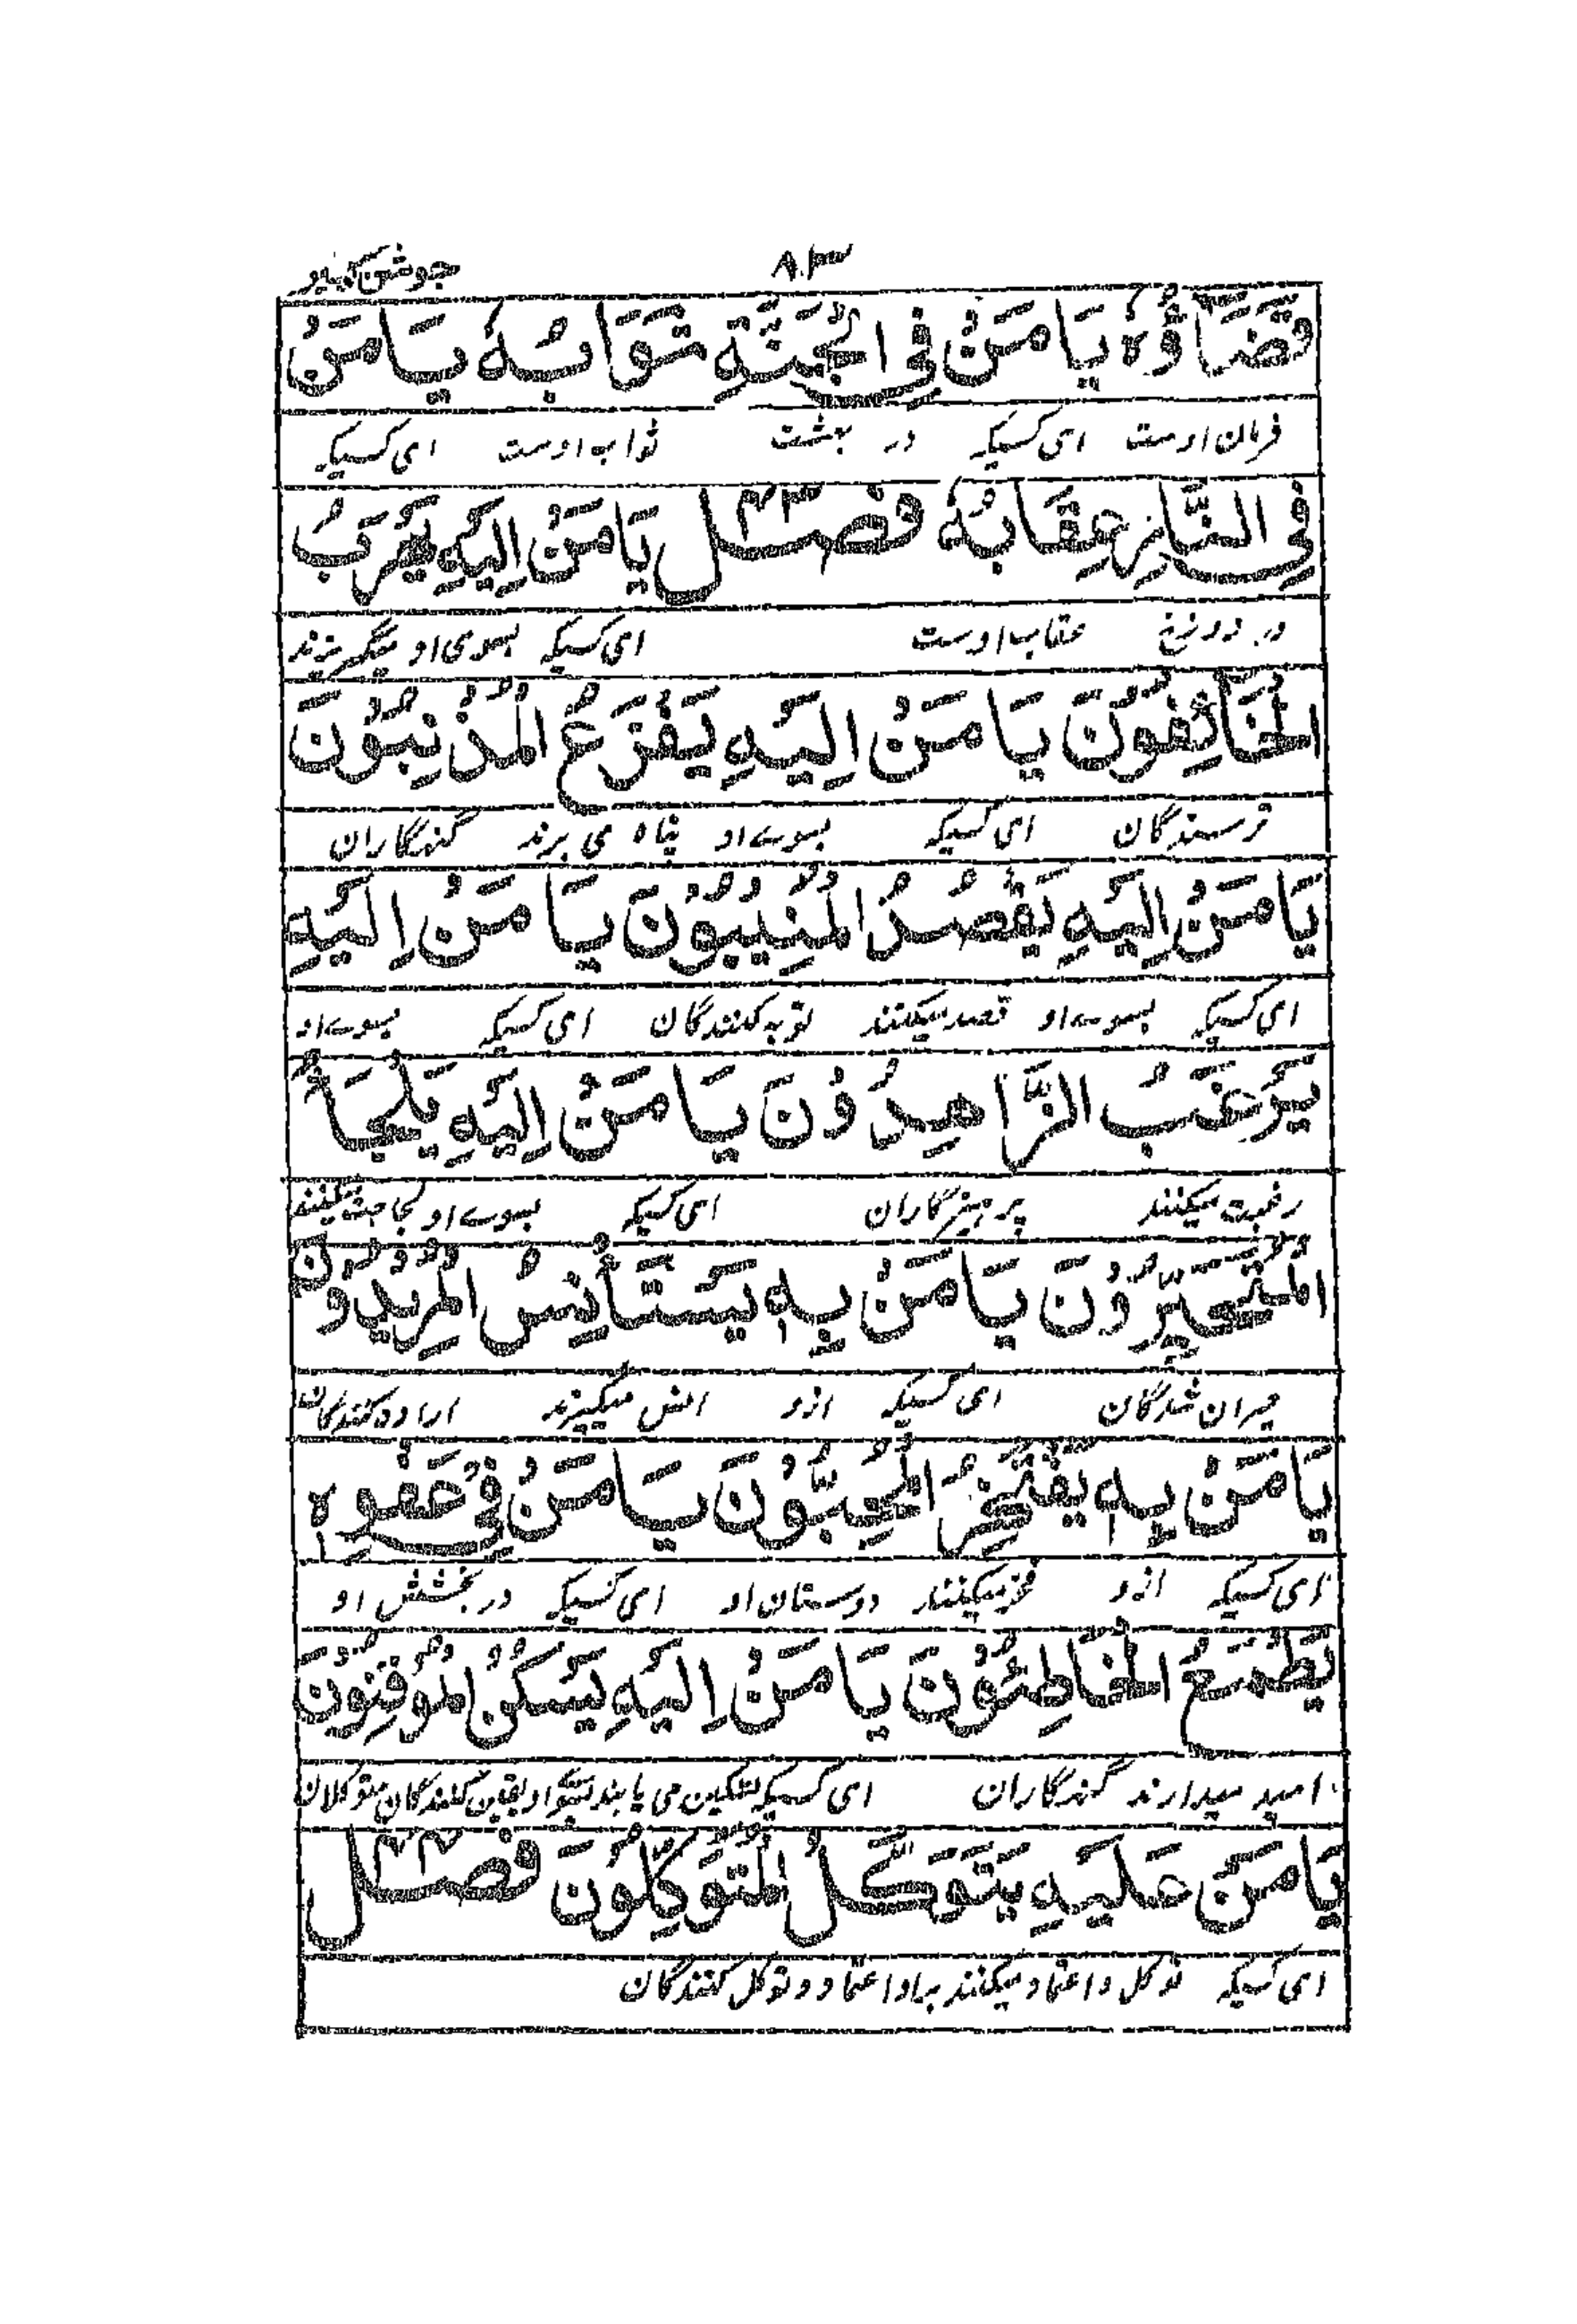 ۸۰۳ جوشن کبیر
قَضَاؤُهُ يَا مَنْ فِي الْجَنَّةِ ثَوَابُهُ يَا مَنْ
فرمان اوست ای کسیکه در بهشت ثواب اوست ای کسیکه
فِي النَّارِ عِقَابُهُ فصل ۴۳ يَا مَنْ اِلَيْهِ يَهْرَبُ
در دوزخ عقاب اوست ای کسیکه بسوی او میگریزند
الْخَائِفُونَ يَا مَنْ اِلَيْهِ يَفْزَعُ الْمُذْنِبُونَ
ترسندگان ای کسیکه بسوے او پناه می برند گنهگاران
يَا مَنْ اِلَيْهِ يَقْصُدُ الْمُنِيبُونَ يَا مَنْ اِلَيْهِ
ای کسیکه بسوے او قصد میکنند توبه کنندگان ای کسیکه بسوے او
يَرْغَبُ الزَّاهِدُونَ يَا مَنْ اِلَيْهِ يَلْجَأُ
رغبت میکنند پرهیزگاران ای کسیکه بسوے او
الْمُتَحَيِّرُونَ يَا مَنْ بِهِ يَسْتَأْنِسُ الْمُرِيدُونَ
حیران شدگان ای کسیکه ازو انس میگیرند اراده کنندگان
يَا مَنْ بِهِ يَفْتَخِرُ الْمُحِبُّونَ يَا مَنْ فِي عَفْوِهِ
ای کسیکه ازو فخر میکنند دوستان او ای کسیکه در بخشش او
يَطْمَعُ الْخَاطِئُونَ يَا مَنْ اِلَيْهِ يَسْكُنُ الْمُوقِنُونَ
امید میدارند گنهگاران ای کسیکه تسکین می یابند
يَا مَنْ عَلَيْهِ يَتَوَكَّلُ الْمُتَوَكِّلُونَ فصل ۴۴
ای کسیکه توکل و اعتماد میکنند براو اعتماد و توکل کنندگان